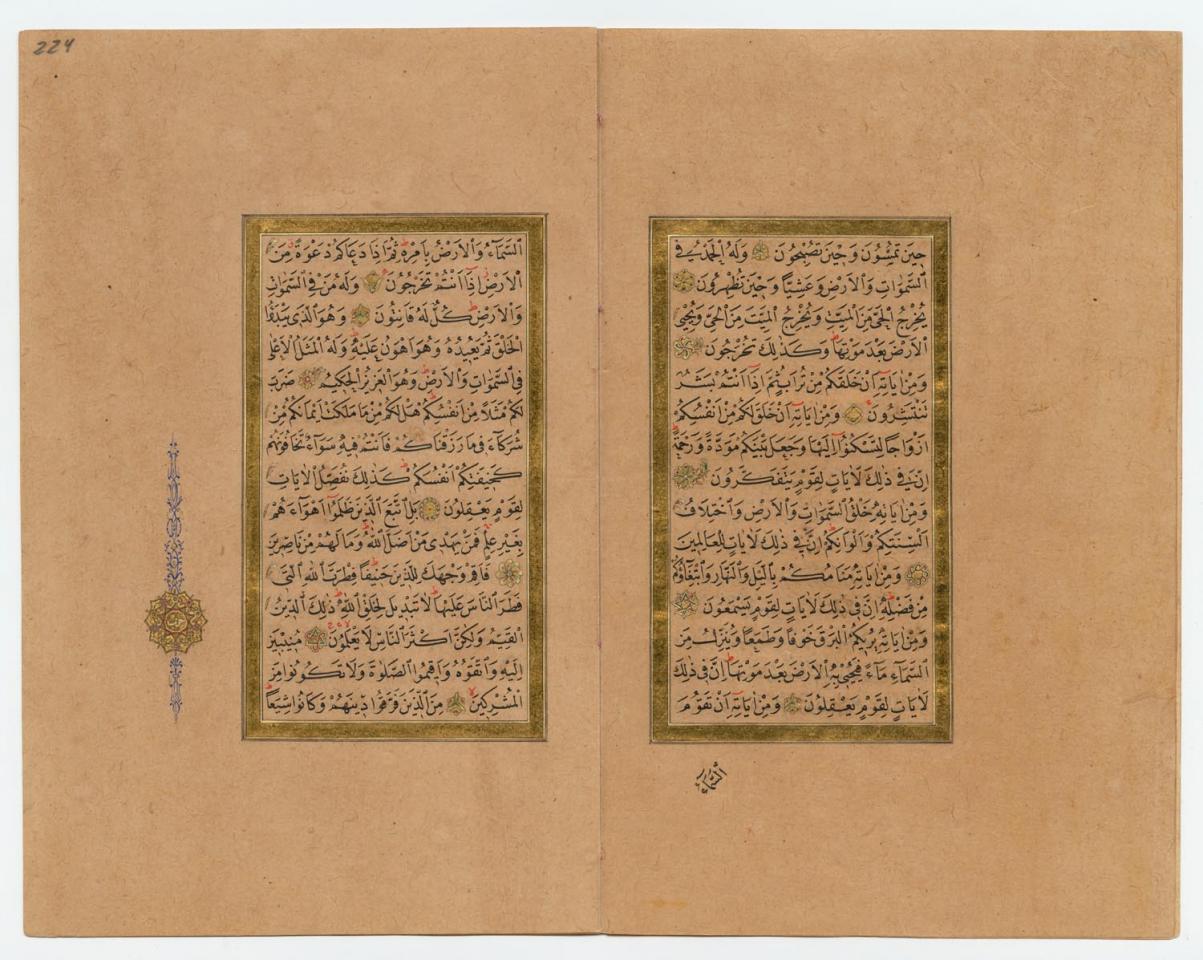 حِينَ تُمْسُونَ وَحِينَ تُصْبِحُونَ وَلَهُ الْحَمْدُ فِي
السَّمٰوَاتِ وَالْاَرْضِ وَعَشِيًّا وَحِينَ تُظْهِرُونَ
يُخْرِجُ الْحَيَّ مِنَ الْمَيِّتِ وَيُخْرِجُ الْمَيِّتَ مِنَ الْحَيِّ وَيُحْيِي
الْاَرْضَ بَعْدَ مَوْتِهَا وَكَذٰلِكَ تُخْرَجُونَ
وَمِنْ اٰيَاتِهِ اَنْ خَلَقَكُمْ مِنْ تُرَابٍ ثُمَّ اِذَا اَنْتُمْ بَشَرٌ
تَنْتَشِرُونَ وَمِنْ اٰيَاتِهِ اَنْ خَلَقَ لَكُمْ مِنْ اَنْفُسِكُمْ
اَزْوَاجًا لِتَسْكُنُوا اِلَيْهَا وَجَعَلَ بَيْنَكُمْ مَوَدَّةً وَرَحْمَةً
اِنَّ فِي ذٰلِكَ لَاٰيَاتٍ لِقَوْمٍ يَتَفَكَّرُونَ
وَمِنْ اٰيَاتِهِ خَلْقُ السَّمٰوَاتِ وَالْاَرْضِ وَاخْتِلَافُ
اَلْسِنَتِكُمْ وَاَلْوَانِكُمْ اِنَّ فِي ذٰلِكَ لَاٰيَاتٍ لِلْعَالِمِينَ
وَمِنْ اٰيَاتِهِ مَنَامُكُمْ بِالَّيْلِ وَالنَّهَارِ وَابْتِغَاؤُكُمْ
مِنْ فَضْلِهِ اِنَّ فِي ذٰلِكَ لَاٰيَاتٍ لِقَوْمٍ يَسْمَعُونَ
وَمِنْ اٰيَاتِهِ يُرِيكُمُ الْبَرْقَ خَوْفًا وَطَمَعًا وَيُنَزِّلُ مِنَ
السَّمَاءِ مَاءً فَيُحْيِي بِهِ الْاَرْضَ بَعْدَ مَوْتِهَا اِنَّ فِي ذٰلِكَ
لَاٰيَاتٍ لِقَوْمٍ يَعْقِلُونَ وَمِنْ اٰيَاتِهِ اَنْ تَقُومَ
السَّمَاءُ
224
السَّمَاءُ وَالْاَرْضُ بِاَمْرِهِ ثُمَّ اِذَا دَعَاكُمْ دَعْوَةً مِنَ
الْاَرْضِ اِذَا اَنْتُمْ تَخْرُجُونَ وَلَهُ مَنْ فِي السَّمٰوَاتِ
وَالْاَرْضِ كُلٌّ لَهُ قَانِتُونَ وَهُوَ الَّذِي يَبْدَؤُا
الْخَلْقَ ثُمَّ يُعِيدُهُ وَهُوَ اَهْوَنُ عَلَيْهِ وَلَهُ الْمَثَلُ الْاَعْلٰى
فِي السَّمٰوَاتِ وَالْاَرْضِ وَهُوَ الْعَزِيزُ الْحَكِيمُ ضَرَبَ
لَكُمْ مَثَلًا مِنْ اَنْفُسِكُمْ هَلْ لَكُمْ مِنْ مَا مَلَكَتْ اَيْمَانُكُمْ مِنْ
شُرَكَاءَ فِي مَا رَزَقْنَاكُمْ فَاَنْتُمْ فِيهِ سَوَاءٌ تَخَافُونَهُمْ
كَخِيفَتِكُمْ اَنْفُسَكُمْ كَذٰلِكَ نُفَصِّلُ الْاٰيَاتِ
لِقَوْمٍ يَعْقِلُونَ بَلِ اتَّبَعَ الَّذِينَ ظَلَمُوا اَهْوَاءَهُمْ
بِغَيْرِ عِلْمٍ فَمَنْ يَهْدِي مَنْ اَضَلَّ اللّٰهُ وَمَا لَهُمْ مِنْ نَاصِرِينَ
فَاَقِمْ وَجْهَكَ لِلدِّينِ حَنِيفًا فِطْرَتَ اللّٰهِ الَّتِي
فَطَرَ النَّاسَ عَلَيْهَا لَا تَبْدِيلَ لِخَلْقِ اللّٰهِ ذٰلِكَ الدِّينُ
الْقَيِّمُ وَلٰكِنَّ اَكْثَرَ النَّاسِ لَا يَعْلَمُونَ مُنِيبِينَ
اِلَيْهِ وَاتَّقُوهُ وَاَقِيمُوا الصَّلٰوةَ وَلَا تَكُونُوا مِنَ
الْمُشْرِكِينَ مِنَ الَّذِينَ فَرَّقُوا دِينَهُمْ وَكَانُوا شِيَعًا